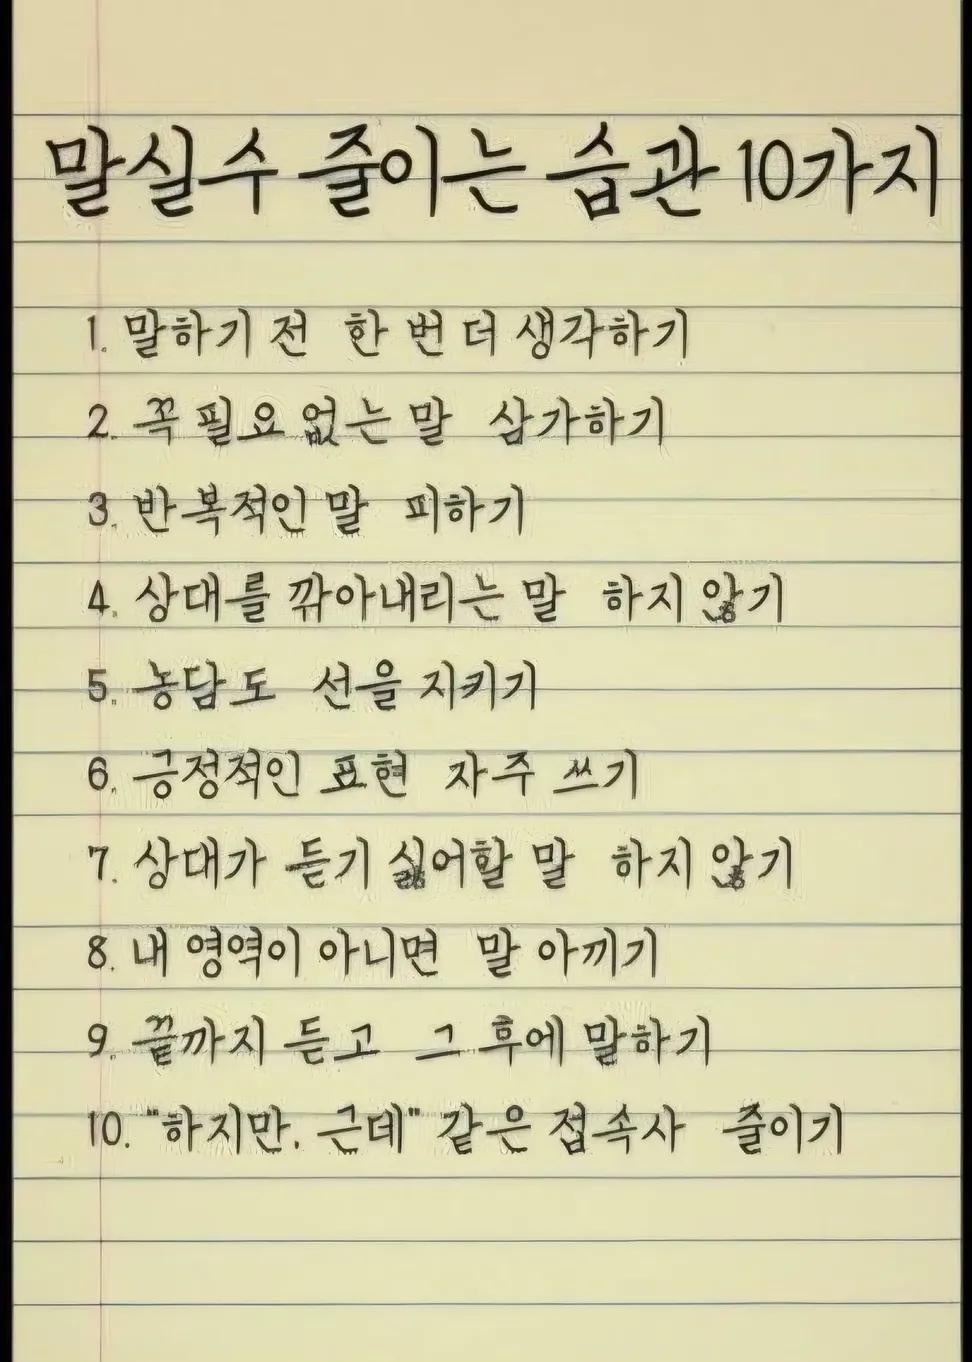 말실수 줄이는 습관 10가지
1. 말하기 전 한 번 더 생각하기
2. 꼭 필요 없는 말 삼가하기
3. 반복적인 말 피하기
4. 상대를 깎아내리는 말 하지 않기
5. 농담도 선을 지키기
6. 긍정적인 표현 자주 쓰기
7. 상대가 듣기 싫어할 말 하지 않기
8. 내 영역이 아니면 말 아끼기
9. 끝까지 듣고 그 후에 말하기
10. "하지만, 근데" 같은 접속사 줄이기